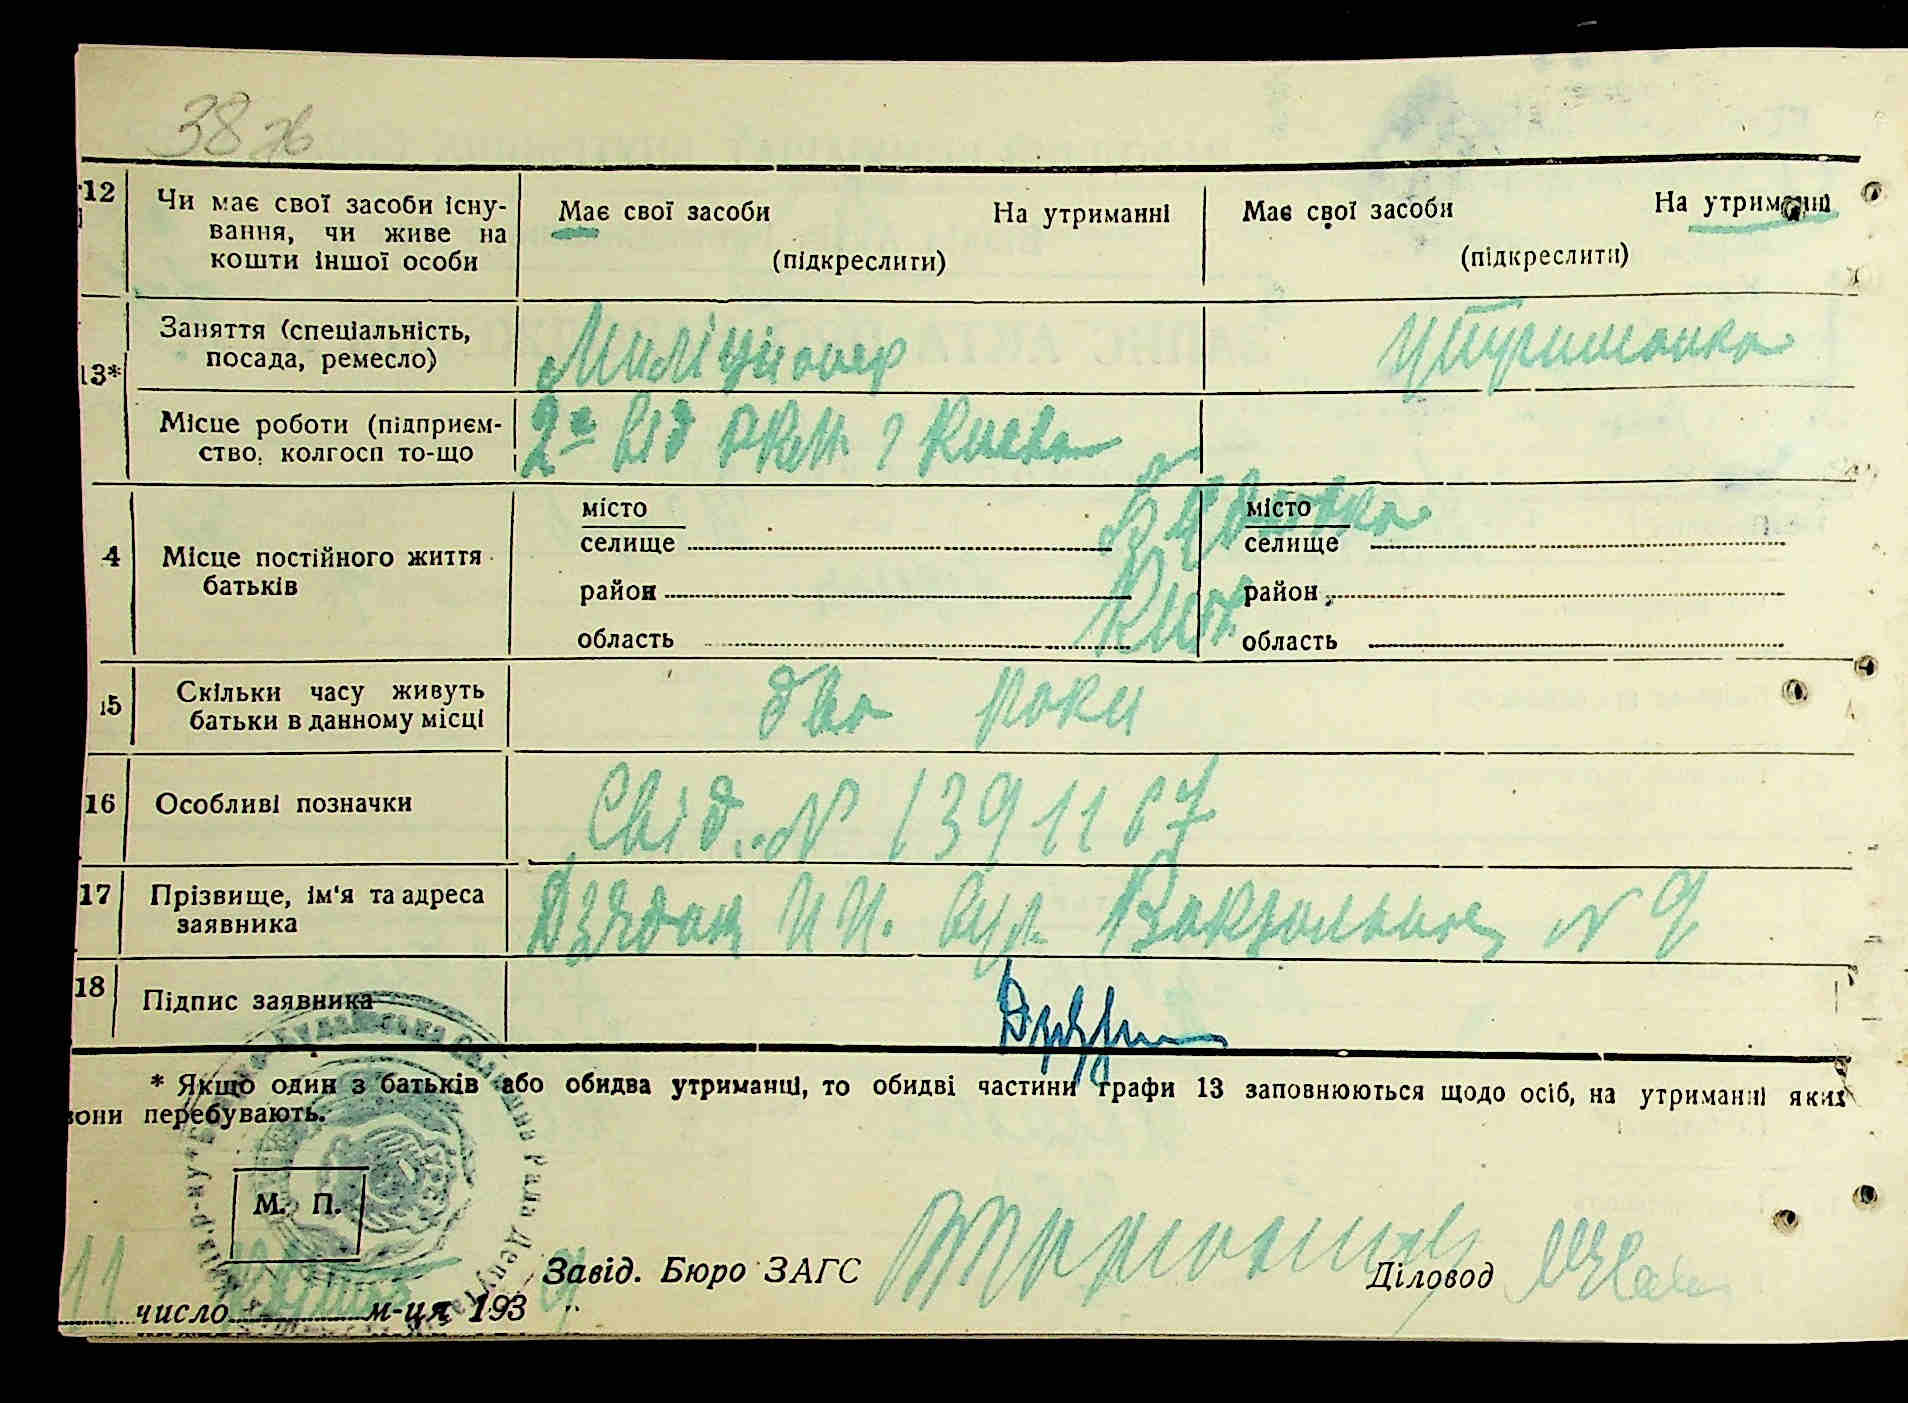 38 зв
12
Чи має свої засоби існу-
вання, чи живе на
кошти іншої особи
Має свої засоби На утриманні
(підкреслити)
Має свої засоби На утриманні
(підкреслити)
13*
Заняття (спеціальність,
посада, ремесло)
Міліціонер
утриманка
Місце роботи (підприєм-
ство, колгосп то-що
2е від РКМ. г Києва
4
Місце постійного життя
батьків
місто
селище
район
область
місто
селище
район
область
Київ
15
Скільки часу живуть
батьки в данному місці
два роки
16
Особливі позначки
Свід. № 1391167
17
Прізвище, ім'я та адреса
заявника
И. И. вул. Вокзальная № 9
18
Підпис заявника
* Якщо один з батьків або обидва утриманці, то обидві частини графи 13 заповнюються щодо осіб, на утриманні яких
вони перебувають.
М. П.
Завід. Бюро ЗАГС
Діловод
11 число м-ця 1939